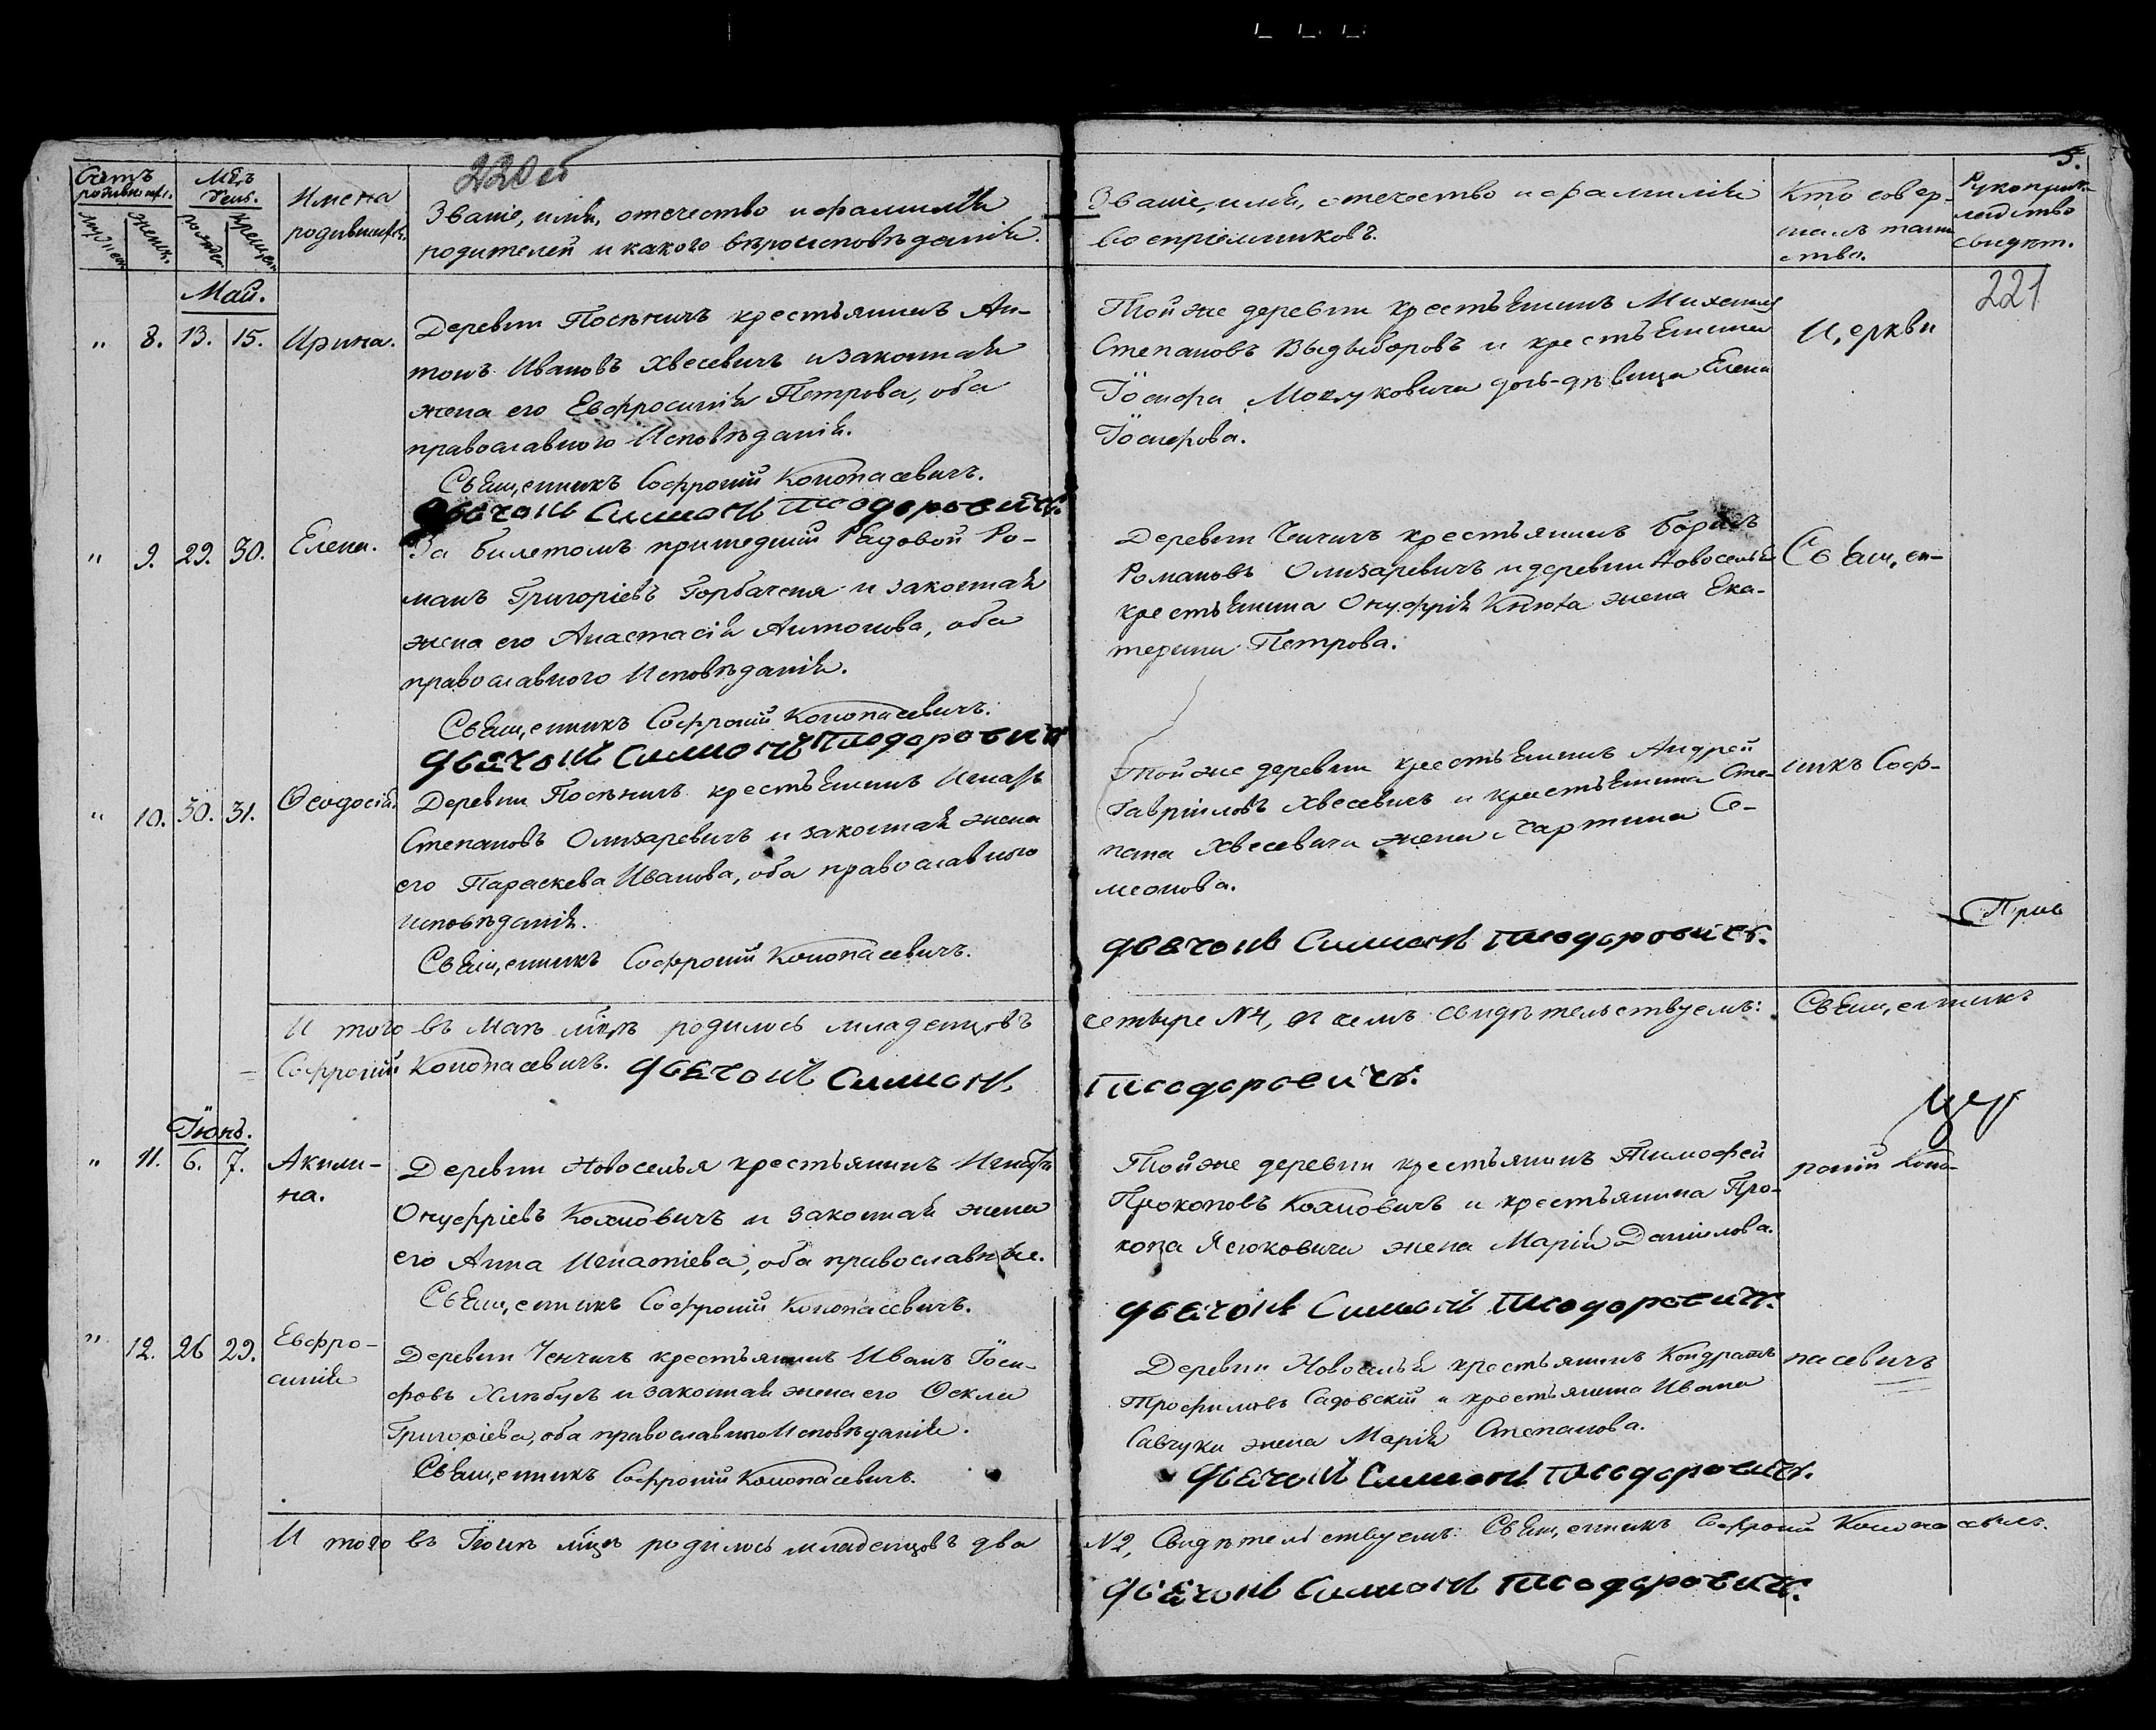 220 об
Счетъ родившихся.
Мужеск. Женск.
Мѣс. День.
рожден. крещен.
Имена родившихся.
Званіе, имя, отечество и фамилія
родителей и какого вѣроисповѣданія.
5.
Званіе, имя, отечество и фамилія
воспріемниковъ.
Кто совер-
шалъ таин
ство.
Рукоприк-
ледство
свидѣт.
221
Май.
" 8. 13. 15. Ирина.
Деревни Посѣничъ крестьянинъ Ан-
тонъ Ивановъ Хвесевичъ и законная
жена его Евфросинія Петрова, оба
православного Исповѣданія.
Священникъ Софроній Конопасевичъ.
Дьячокъ Симонъ Тиодоровичъ.
Той же деревни крестьянинъ Михаилъ
Степановъ и крестьянина
Іосифа дочь-дѣвица Елена
Іосифова.
Церкви
" 9. 29. 30. Елена.
За билетомъ пришедшій Рядовой Ро-
манъ Григоріевъ Горбаченя и законная
жена его Анастасія Антонова, оба
православного Исповѣданія.
Священникъ Софроній Конопасевичъ.
Дьячокъ Симонъ Тиодоровичъ
Деревни Ченчичъ крестьянинъ Борисъ
Романовъ Олизаревичъ и деревни Новоселья
крестьянина Онуфрія Кнюха жена Ека-
терина Петрова.
Священ-
" 10. 30. 31. Ѳеодосія.
Деревни Посѣничъ крестьянинъ Игнатъ
Степановъ Олизаревичъ и законная жена
его Параскева Иванова, оба православного
исповѣданія.
Священникъ Софроній Конопасевичъ.
Той же деревни крестьянинъ Андрей
Гавріиловъ Хвесевичъ и крестьянина Сте-
пана Хвесевича жена Мартина Се-
меонова.
Дьячокъ Симонъ Тиодоровичъ.
никъ Соф-
Прив
И того въ Маѣ мѣсяцѣ родилось младенцовъ
четыре №4, въ чемъ свидѣтельствуемъ: Священникъ
Софроній Конопасевичъ. Дьячокъ Симонъ
Тиодоровичъ.
Іюнь.
цер
" 11. 6. 7. Акили-
на.
Деревни Новоселья крестьянинъ Игнатъ
Онуфріевъ Кохновичъ и законная жена
его Анна Игнатіева, оба православные.
Священникъ Софроній Конопасевичъ.
Той же деревни крестьянинъ Тимофей
Прокоповъ Кохновичъ и крестьянина Про-
копа Ясюковича жена Марія Даніилова.
Дьячокъ Симонъ Тиодоровичъ.
роній Коно-
" 12. 26 29. Евфро-
синія
Деревни Ченчичъ крестьянинъ Иванъ Іоси-
фовъ Хлѣбусъ и законная жена его Ѳекла
Григоріева, оба православного Исповѣданія.
Священникъ Софроній Конопасевичъ.
Деревни Новоселья крестьянинъ Кондратъ
Трофимовъ Садовскій и крестьянина Ивана
Савчука жена Марія Степанова.
Дьячокъ Симонъ Тиодоровичъ.
пасевичъ
И того въ Іюнѣ мѣсяцѣ родилось младенцовъ два
№2, Свидѣтельствуемъ: Священникъ Софроній Конопасевичъ.
Дьячокъ Симонъ Тиодоровичъ.